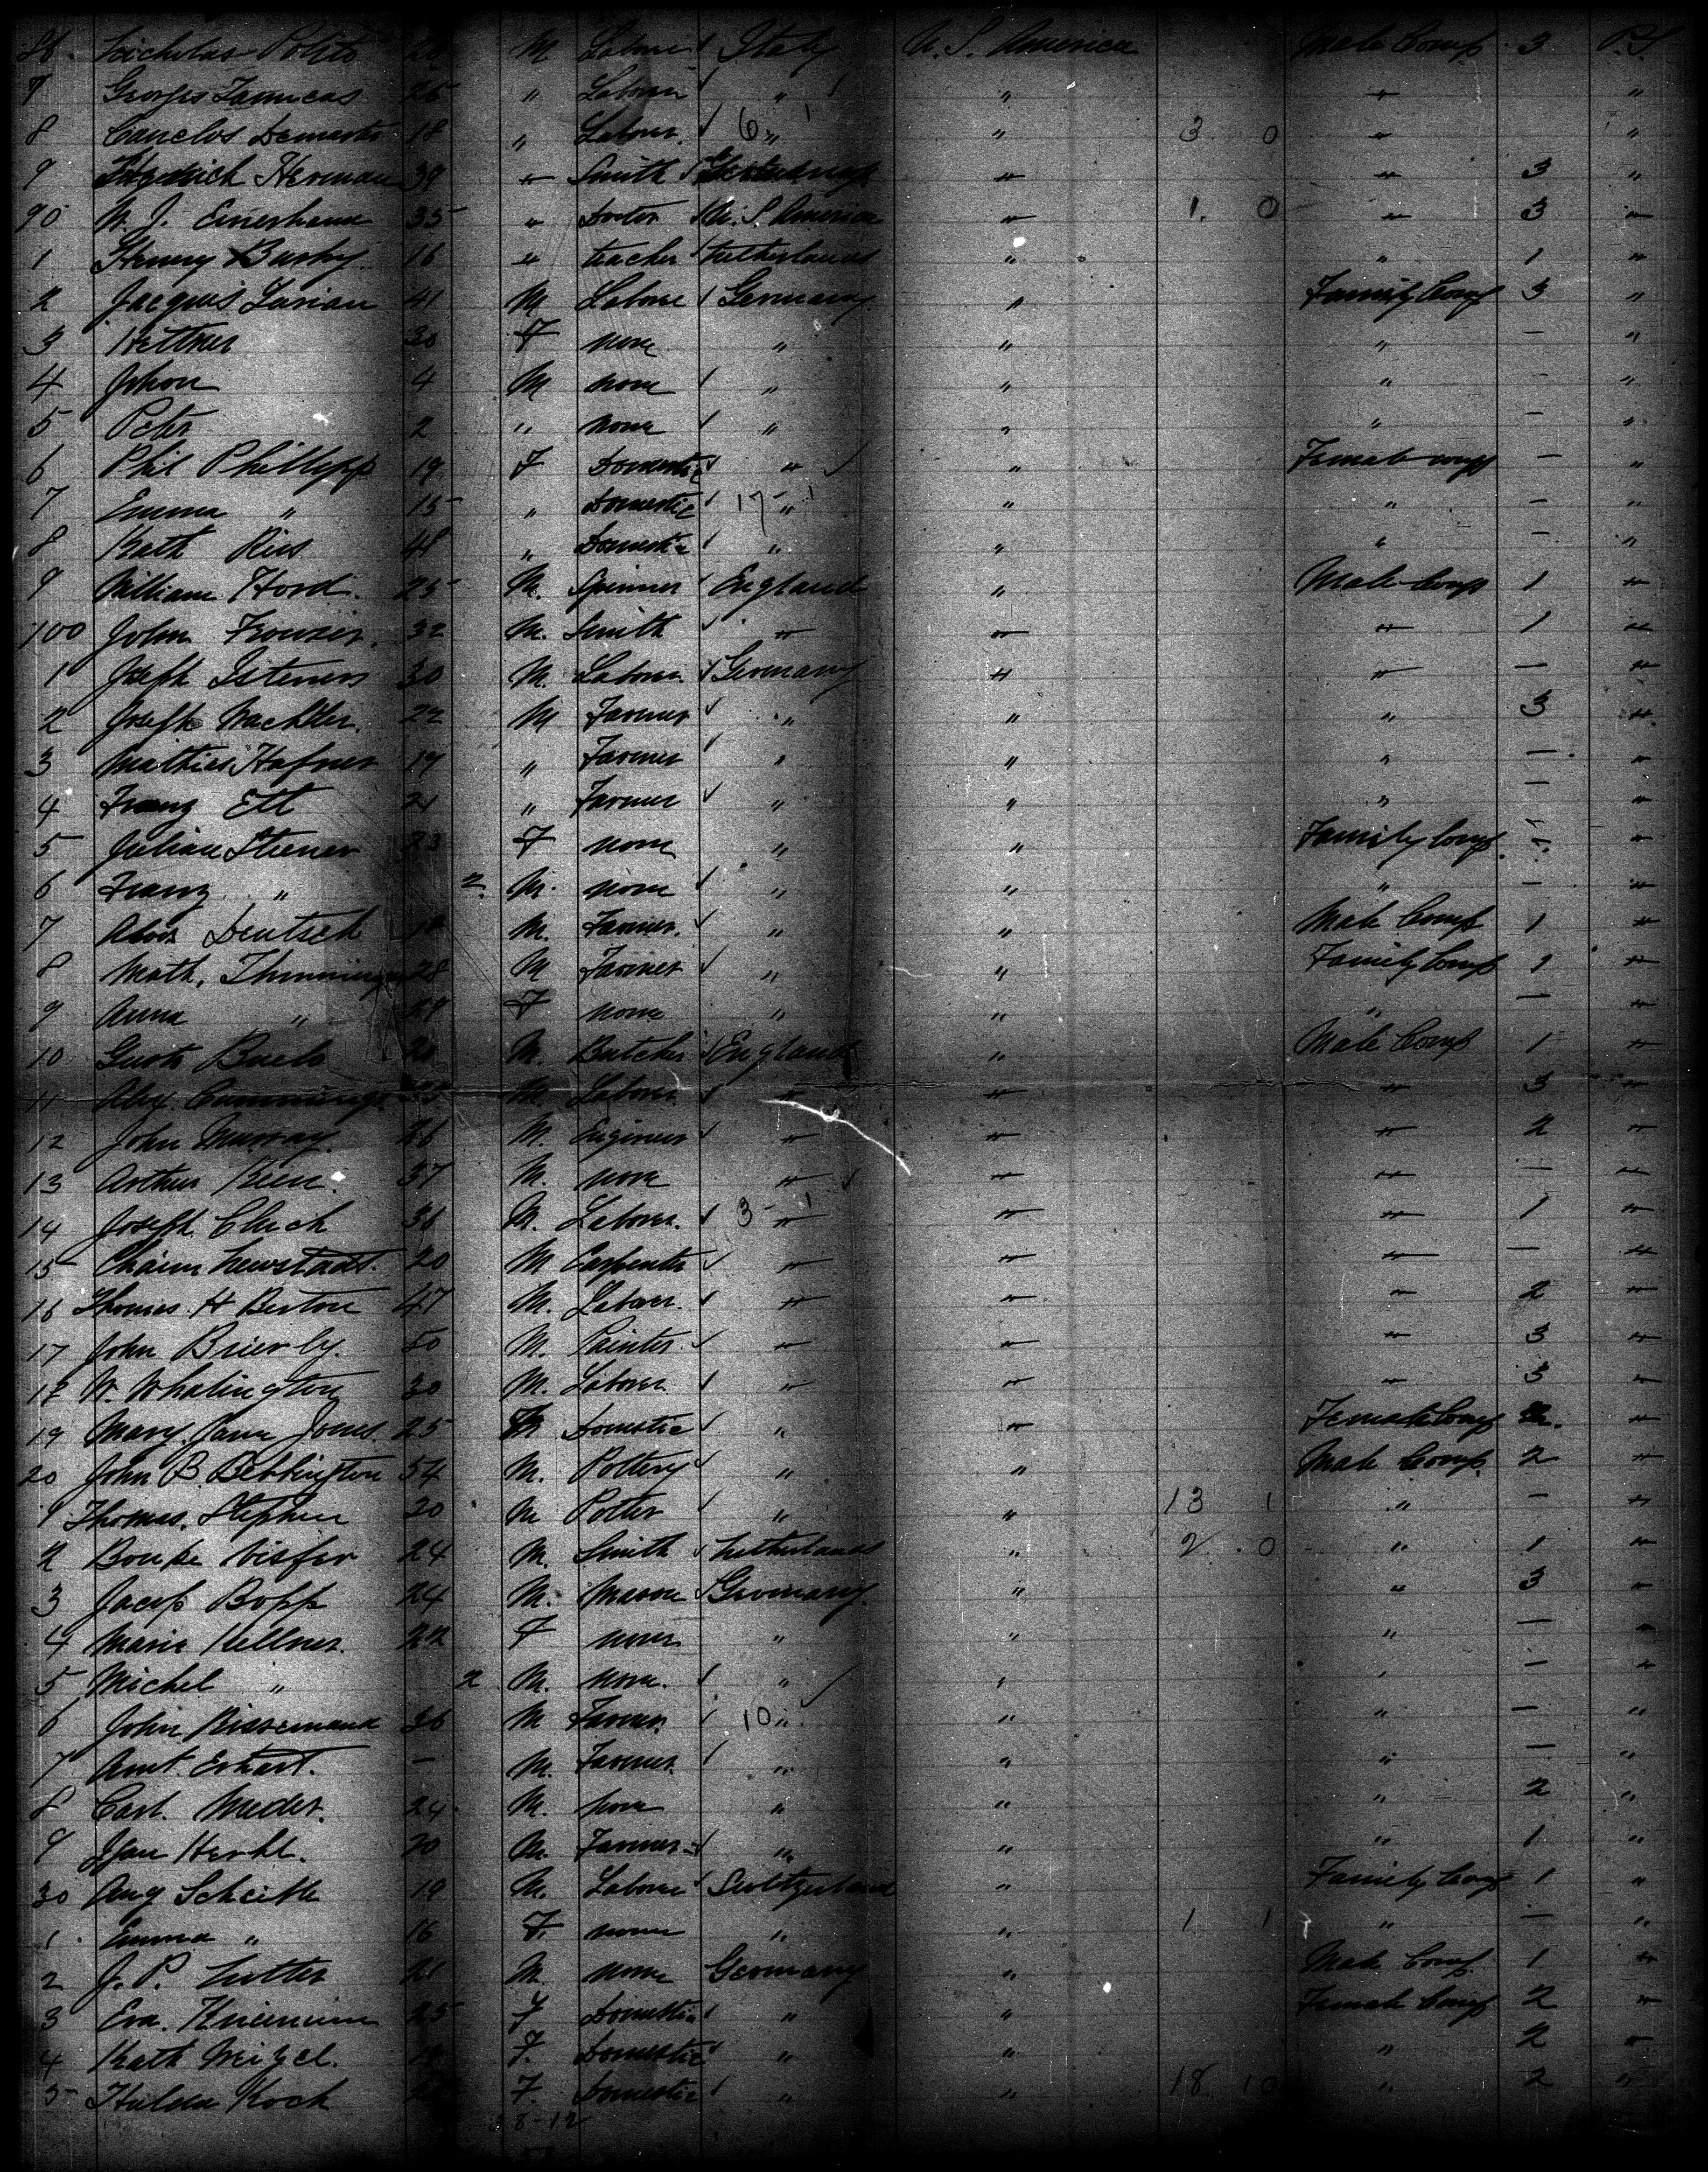 86 Nicholas Polito 24 M Laborer ✓ Italy U. S. America Male Comp 3 P.S.
7 Georges 25 " Laborer ✓ " " " "
8 Demarto 18 " Laborer ✓ 6 " " 3 0 " "
9 Fredrich Herman 39 " Smith ✓ Germany " " 3 "
90 M. J. 35 " Doctor ✓ U. S. America " 1. 0 " 3 "
1 Henry Busby 16 " teacher ✓ Netherlands " " 1 "
2 Jacques Lorian 41 M Laborer ✓ Germany " Family Comp 3 "
3 30 F none " " " — "
4 Johon 4 M none ✓ " " " — "
5 Peter 2 " none ✓ " " " — "
6 Phil Phillipp 19 F Domestic ✓ " " Female comp — "
7 Emma " 15 " Domestic ✓ 17 " " " — "
8 Kath Ries 48 " Domestic ✓ " " " — "
9 William Hord. 25 M. Spinner ✓ England " Male Comp 1 "
100 John 32 M. Smith ✓ " " " 1 "
1 Joseph 30 M. Laborer. ✓ Germany " " — "
2 Joseph Wachtler. 22 M Farmer ✓ " " " 3 "
3 Mathies Hafner 17 " Farmer ✓ " " " — "
4 Franz Ett 21 " Farmer ✓ " " " — "
5 Julian Steener 23 F none " " Family Comp. "
6 Franz " 2 M. none ✓ " " " — "
7 Alois Deutsch 18 M. Farmer. ✓ " " Male Comp 1 "
8 Math. 28 M Farmer ✓ " " Family Comp 1 "
9 Anna " 29 F none " " " — "
10 Gust 20 M. Butcher ✓ England " Male Comp 1 "
11 Alex. Cummings 33 M Laborer ✓ " " " 3 "
12 John Murray. 26 M. Engineer ✓ " " " 2 "
13 Arthur Keen. 37 M. none " " " — "
14 Joseph Chuch 36 M. Laborer. ✓ 3 " " " 1 "
15 Chaim Newstadt. 20 M Carpenter ✓ " " " — "
16 Thomas H Berton 47 M. Laborer. ✓ " " " 2 "
17 John Brierly. 50 M. Painter. ✓ " " " 3 "
18 W. Whalington 30 M. Laborer. ✓ " " " 3 "
19 Mary Jane Jones. 25 Domestic ✓ " " Female Comp 2. "
20 John B Bebbington 54 M. Pottery ✓ " " Male Comp. 2 "
1 Thomas. Stephen 20 M Potter ✓ " " 13 1 " — "
2 Bouke Visser 24 M. Smith ✓ Netherlands " 2 0 " 1 "
3 Jacob Bopp 24 M. Mason ✓ Germany. " " 3 "
4 Marie Kellner. 22 F none " " " — "
5 Michel " 2 M. none. ✓ " " " — "
6 John Rissemann 36 M Farmer. ✓ 10 " " " — "
7 Ernst. — M. Farmer. ✓ " " " — "
8 Carl. Meder. 24. M. none " " " 2 "
9 Jan 20 M. Farmer ✓ " " " 1 "
30 Aug Scheible 19 M. Laborer ✓ Switzerland " Family Comp 1 "
1. Emma " 16 F. none " " 1 1 " — "
2 J. P. Lutter 21 M. none Germany " Male Comp. 1 "
3 Eva. 25 F Domestic ✓ " " Female Comp 2 "
4 Kath Weizel. 19 F. Domestic ✓ " " " 2 "
5 Hulda Koch F. Domestic ✓ " " 18 10 " 2 "
8-12